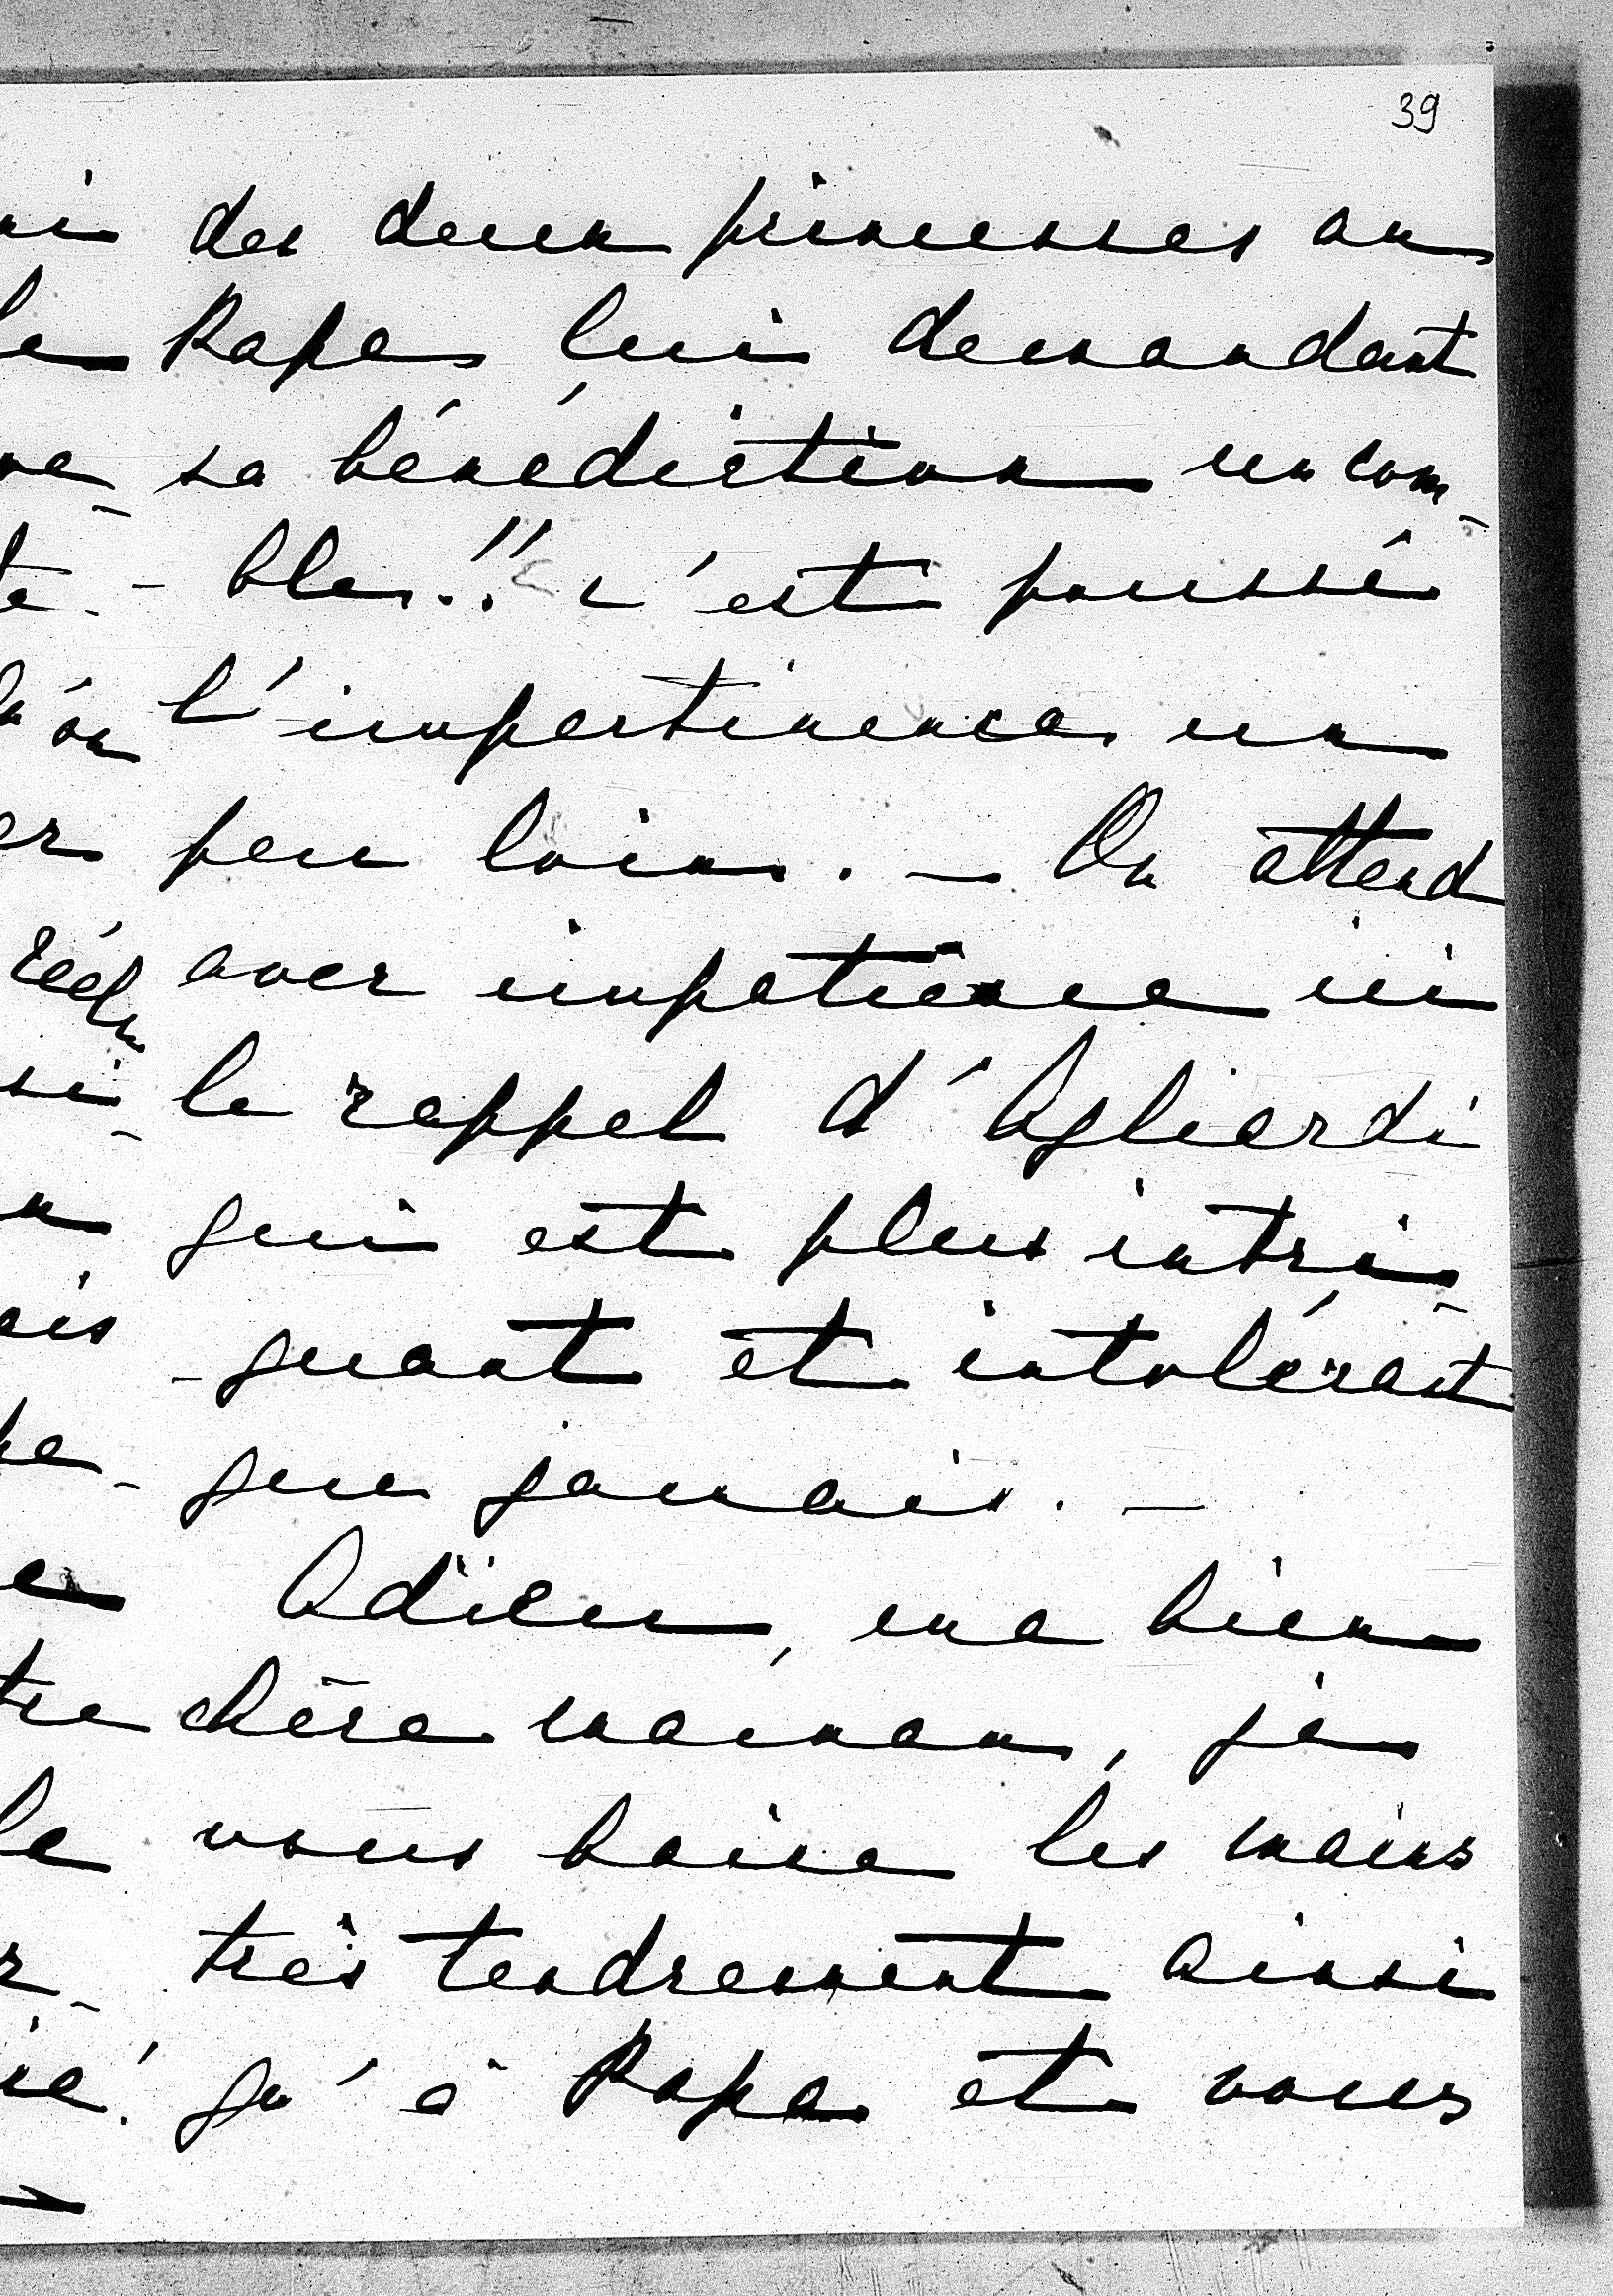 39
des deux princesses au
Pape, lui demandant
sa bénédiction un com-
-ble.!! c'est poussé
l'impertinence un
peu loin. — On attend
avec impatience ici
le rappel d'Agliardi
qui est plus intri-
-guant et intolérant
que jamais. —
Adieu, ma bien
chère maman, je
vous baise les mains
très tendrement ainsi
qu'à Papa et vous